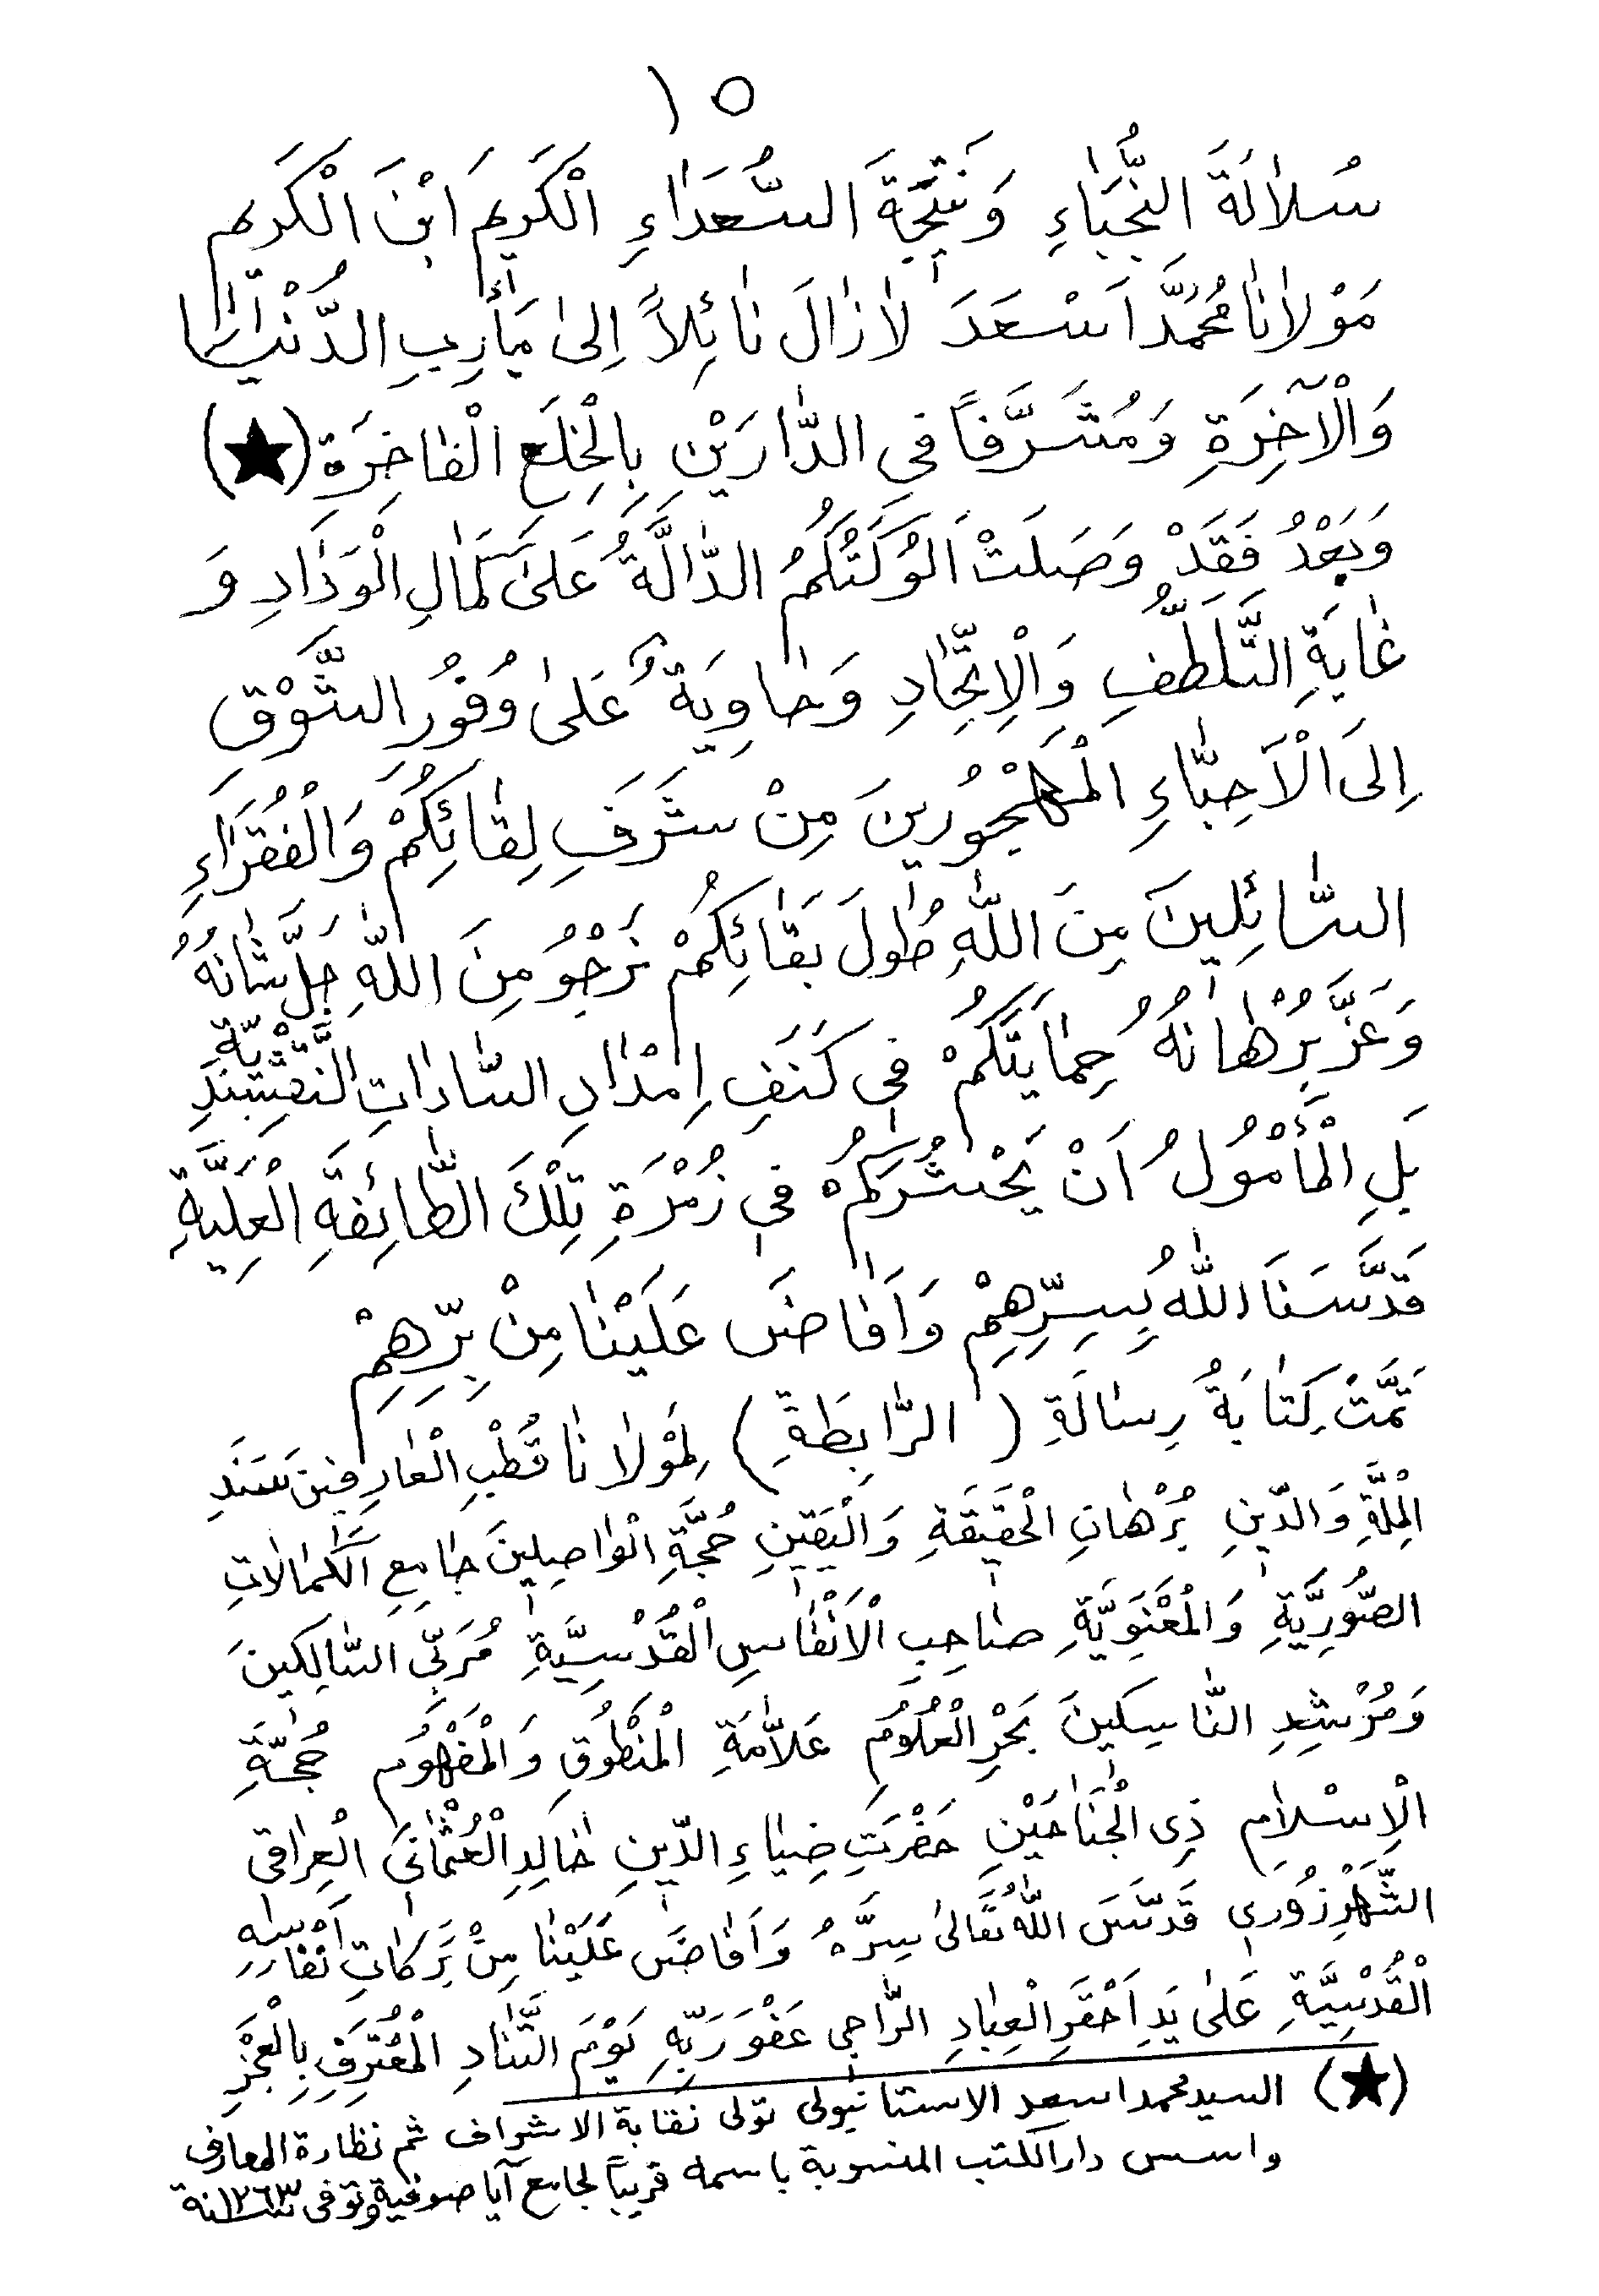 ١٥
سُلاٰلَةَ النُّجَبَاٰءِ وَنَتٖيجَةَ السُّعَدَاٰءِ الْكَرٖيمَ ابْنَ الْكَرٖيمِ
مَوْلاٰنَا مُحَمَّدَ اَسْعَدَ لاٰزَالَ نٰائِلاً اِلىٰ مَأٰرِبِ الدُّنْيَا
وَالْآخِرَةِ وَمُتَشَرَّفاً فِى الدّٰارَيْنِ بِالْخِلَعِ الْفٰاخِرَةِ (★)
وَبَعْدُ فَقَدْ وَصَلَتْ اَلُوكَتُكُمُ الدّٰالَّةُ عَلىٰ كَمَالِ الْوَدَادِ وَ
غٰايَةِ التَّلَطُّفِ وَالْاِتِّحَادِ وَحٰاوِيَةٌ عَلىٰ وُفُورِ الشَّوْقِ
اِلَى الْاَحِبّٰاءِ الْمَهْجُورٖينَ مِنْ شَرَفِ لِقٰائِكُمْ وَالْفُقَرٰاءِ
السّٰائِلٖينَ مِنَ اللّٰهِ طُولَ بَقٰائِكُمْ نَرْجُو مِنَ اللّٰهِ جَلَّ شٰانُهُ
وَعَزَّ بُرْهٰانُهُ حِمٰايَتَكُمْ فٖى كَنَفِ اِمْدٰادِ السّٰادٰاتِ النَّقْشَبَنْدِيَّةِ
بَلِ الْمَأْمُولُ اَنْ يَحْشُرَكُمْ فٖى زُمْرَةِ تِلْكَ الطّٰائِفَةِ الْعَلِيَّةِ
قَدَّسَنَا اللّٰهُ بِسِرِّهِمْ وَاَفٰاضَ عَلَيْنٰا مِنْ بِرِّهِمْ
تَمَّتْ كِتٰابَةُ رِسٰالَةِ ( الرّٰابِطَةِ ) لِمَوْلاٰنٰا قُطْبِ الْعٰارِفٖينَ سَنَدِ
الْمِلَّةِ وَالدّٖينِ بُرْهٰانِ الْحَقٖيقَةِ وَالْيَقٖينِ حُجَّةِ الْوٰاصِلٖينَ جٰامِعِ الْكَمٰالاٰتِ
الصُّورِيَّةِ وَالْمَعْنَوِيَّةِ صٰاحِبِ الْاَنْفٰاسِ الْقُدْسِيَّةِ مُرَبِّى السّٰالِكٖينَ
وَمُرْشِدِ النّٰاسِكٖينَ بَحْرِ الْعُلُومِ عَلاّٰمَةِ الْمَنْطُوقِ وَالْمَفْهُومِ حُجَّةِ
الْاِسْلاٰمِ ذِى الْجَنٰاحَيْنِ حَضْرَتِ ضِيٰاءِ الدّٖينِ خٰالِدِ الْعُثْمٰانِىِّ الْعِرٰاقِى
الشَّهْرَزُورٖى قَدَّسَ اللّٰهُ تَعَالىٰ سِرَّهُ وَاَفٰاضَ عَلَيْنٰا مِنْ بَرَكٰاتِ اَنْفٰاسِهِ
الْقُدْسِيَّةِ عَلىٰ يَدِ اَحْقَرِ الْعِبٰادِ الرّٰاجٖى عَفْوَ رَبِّهِ يَوْمَ التَّنٰادِ الْمُعْتَرِفِ بِالْعَجْزِ
(★) السيد محمد اسعد الاستانبولى تولى نقابة الاشراف ثم نظارة المعارف
واسس دار الكتب المنسوبة باسمه قريباً لجامع آيا صوفية وتوفى سنة ١٢٦٣